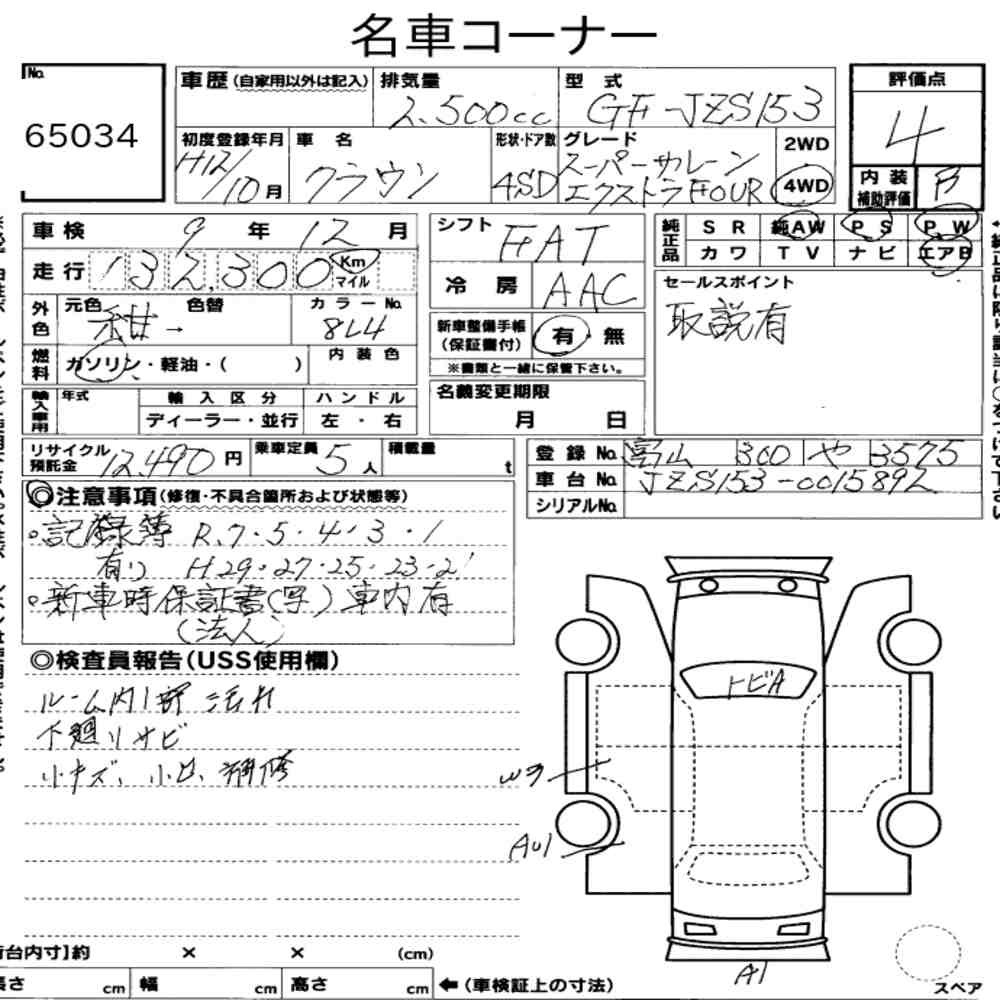 名車コーナー
No.
65034
車歴(自家用以外は記入)
排気量
2.500cc
型式
GF-JZS153
評価点
4
初度登録年月
H12/10月
車名
クラウン
形状・ドア数
4SD
グレード
スーパーサルーン
エクストラFOUR
2WD
4WD
内装
補助評価
B
車検 9年 12月
走行 132,300 Km
マイル
外色
元色
紺→
色替
カラーNo.
8L4
燃料
ガソリン・軽油・( )
内装色
輸入車用
年式
輸入区分
ハンドル
ディーラー・並行
左・右
リサイクル
預託金
12,490円
乗車定員
5人
積載量
t
シフト
FAT
冷房
AAC
新車整備手帳
(保証書付)
有 無
※書類と一緒に保管下さい。
名義変更期限
月 日
純正品
SR 純AW PS PW
カワ TV ナビ エアB
セールスポイント
取説有
登録No. 富山 300 や 3575
車台No. JZS153-0015892
シリアルNo.
◎注意事項(修復・不具合箇所および状態等)
○記録簿 R.7・5・4・3・1
有り H29・27・25・23・21
○新車時保証書(写)車内有
(法人)
◎検査員報告(USS使用欄)
ルーム内1部汚れ
下廻りサビ
小キズ、小凹、補修
トビA
W3
AU1
A1
台内寸】約 × × (cm)
長さ cm 幅 cm 高さ cm ←(車検証上の寸法)
スペア